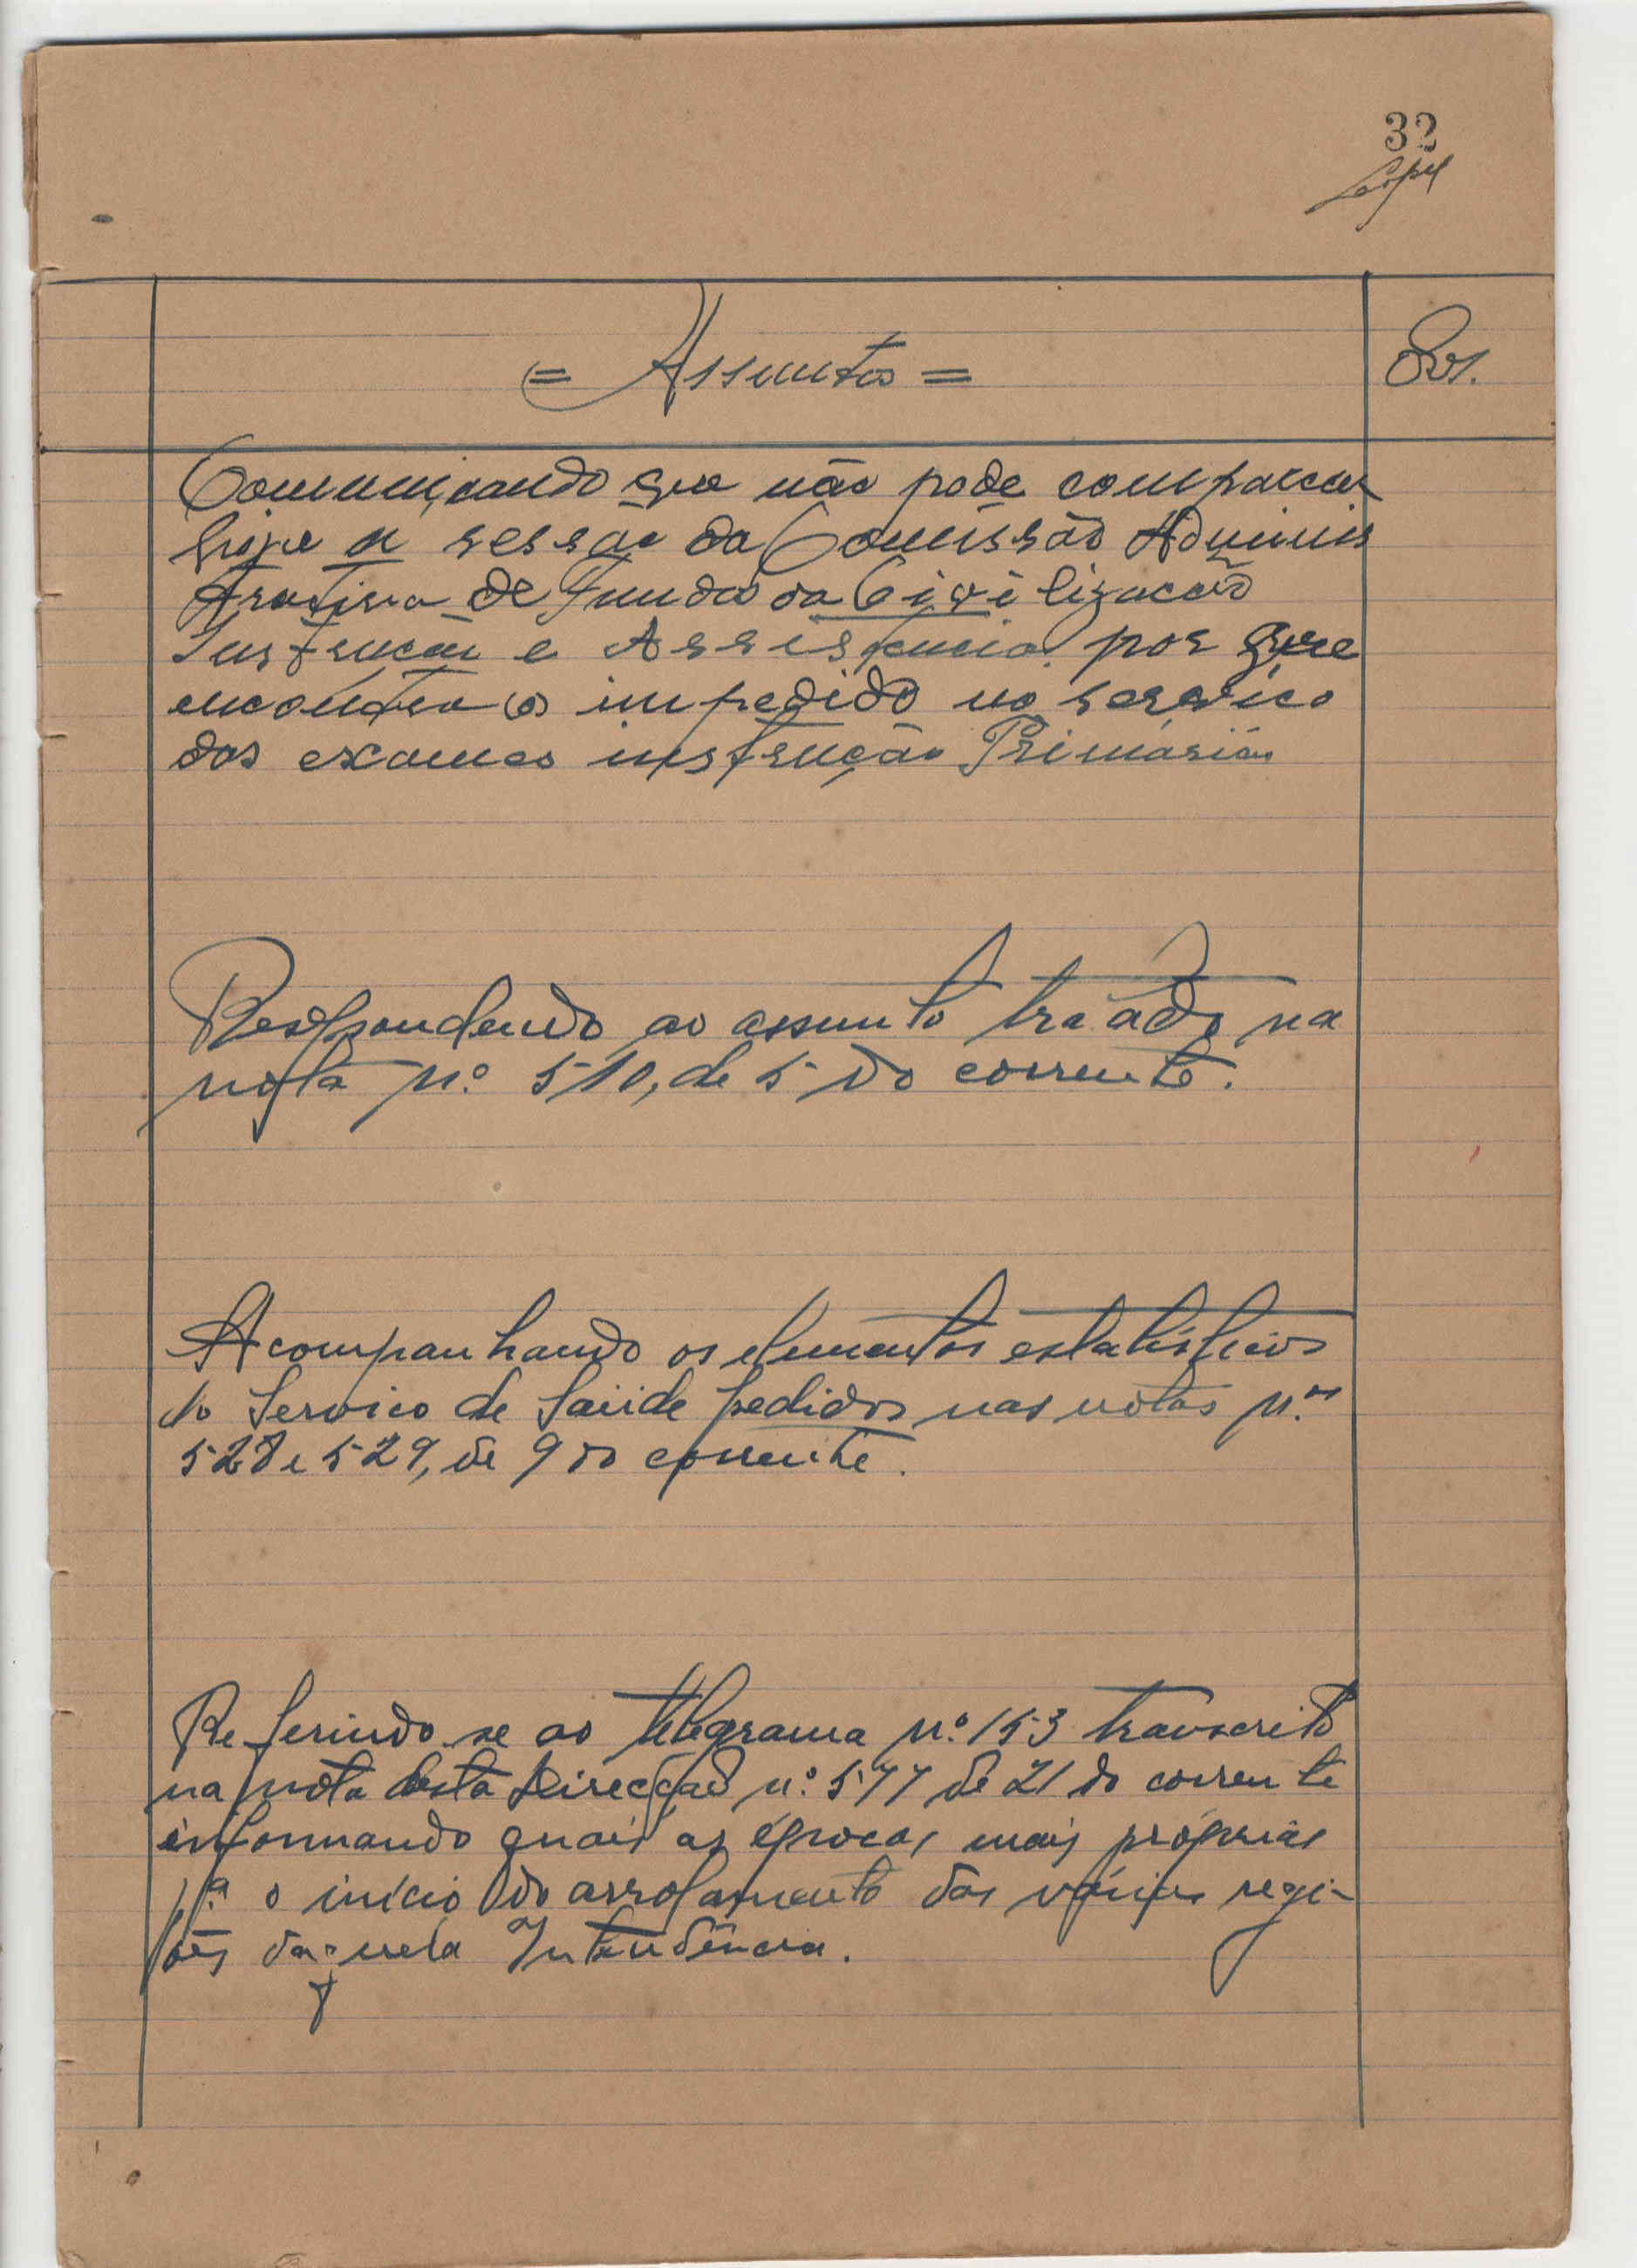 32
= Assuntos =
Obs.
Comunicando que não pode comparecer
hoje a sessão da Comissão Adminis
trativa de Fundos da Civilização
Instrução e Assistencia por que
encontra(o) impedido no serviço
dos exames instrução Primárias
Respondendo ao assunto tratado na
nota n.º 510, de 5 do corrente.
Acompanhando os elementos estatísticos
do Serviço de Saúde pedidos nas notas n.os
528 e 529, de 9 do corrente.
Referindo-se ao telegrama n.º 153 transcrito
na nota desta Direcção n.º 577 de 21 do corrente
informando quais as épocas mais próprias
p.ª o início do arrolamento das várias regi-
ões daquela Intendência.